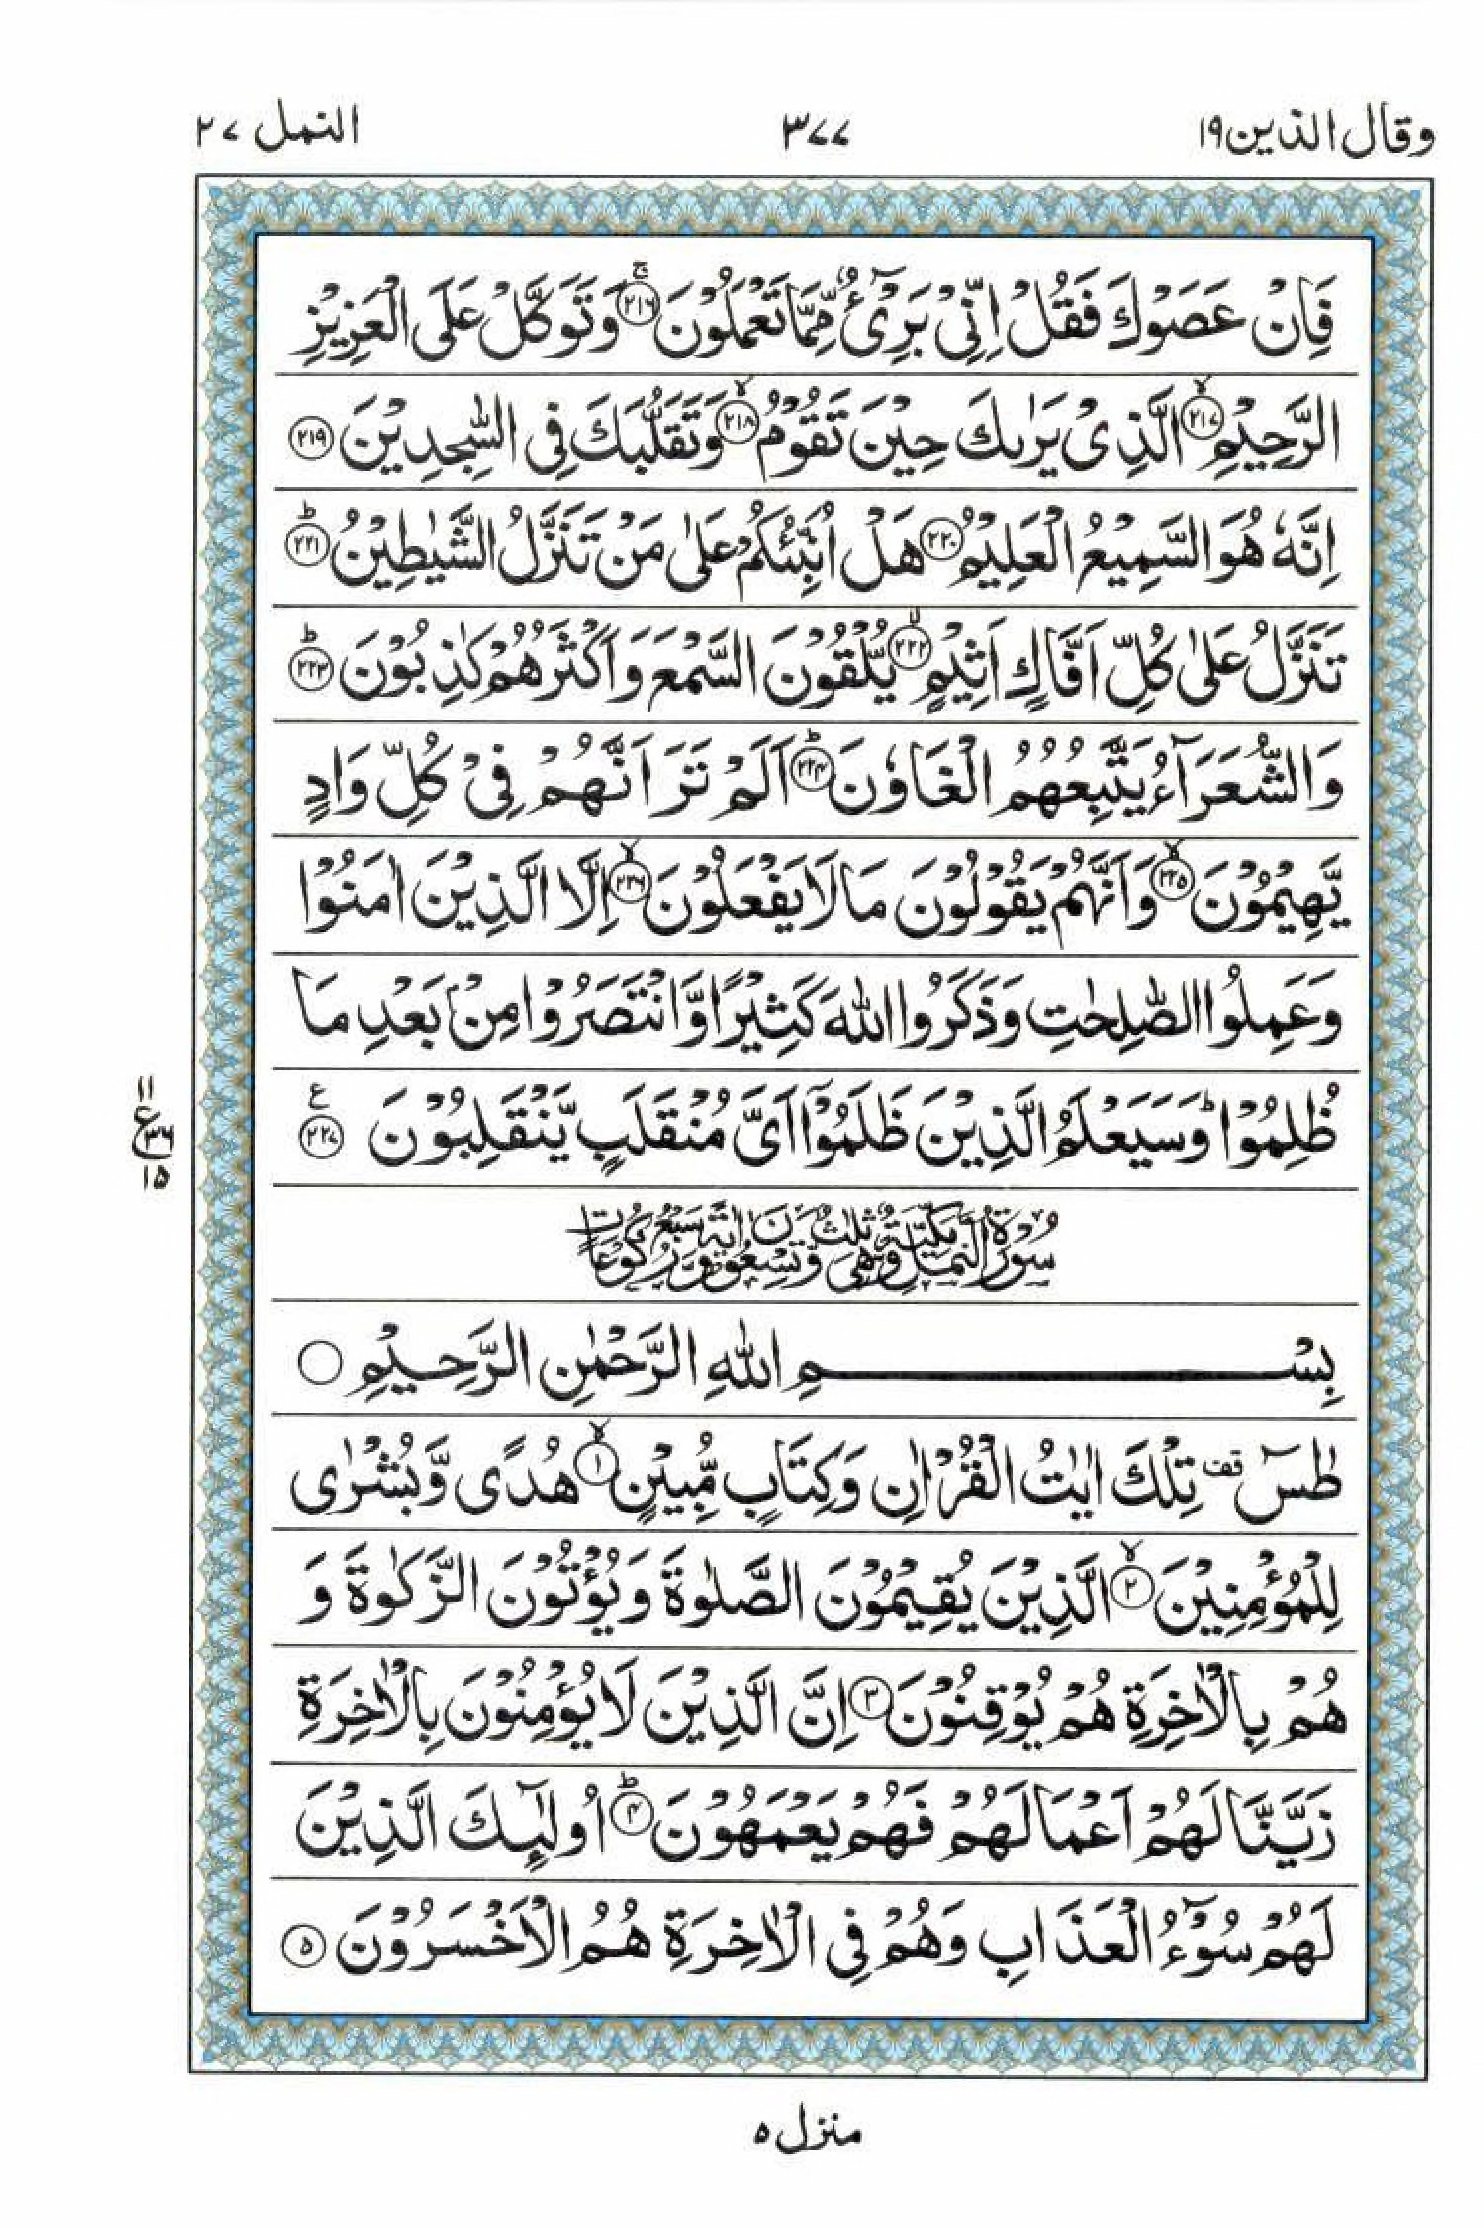 وقال الذين ١٩
٣٧٧
النمل ٢٧
فَاِنۡ عَصَوۡكَ فَقُلۡ اِنِّىۡ بَرِىۡٓءٌ مِّمَّا تَعۡمَلُوۡنَ ۚ‏﴿۲۱۶﴾ وَتَوَكَّلۡ عَلَى الۡعَزِيۡزِ
الرَّحِيۡمِۙ‏﴿۲۱۷﴾ الَّذِىۡ يَرٰٮكَ حِيۡنَ تَقُوۡمُۙ‏﴿۲۱۸﴾ وَتَقَلُّبَكَ فِى السّٰجِدِيۡنَ‏﴿۲۱۹﴾
اِنَّهٗ هُوَ السَّمِيۡعُ الۡعَلِيۡمُ‏﴿۲۲۰﴾ هَلۡ اُنَبِّئُكُمۡ عَلٰى مَنۡ تَنَزَّلُ الشَّيٰطِيۡنُؕ‏﴿۲۲۱﴾
تَنَزَّلُ عَلٰى كُلِّ اَفَّاكٍ اَثِيۡمٍۙ‏﴿۲۲۲﴾ يُّلۡقُوۡنَ السَّمۡعَ وَاَكۡثَرُهُمۡ كٰذِبُوۡنَؕ‏﴿۲۲۳﴾
وَالشُّعَرَآءُ يَتَّبِعُهُمُ الۡغَاوٗنَؕ‏﴿۲۲۴﴾ اَلَمۡ تَرَ اَنَّهُمۡ فِىۡ كُلِّ وَادٍ
يَّهِيۡمُوۡنَۙ‏﴿۲۲۵﴾ وَاَنَّهُمۡ يَقُوۡلُوۡنَ مَا لَا يَفۡعَلُوۡنَۙ‏﴿۲۲۶﴾ اِلَّا الَّذِيۡنَ اٰمَنُوۡا
وَعَمِلُوا الصّٰلِحٰتِ وَذَكَرُوا اللّٰهَ كَثِيۡرًا وَّانْتَصَرُوۡا مِنۡۢ بَعۡدِ مَا
ظُلِمُوۡاؕ وَسَيَعۡلَمُ الَّذِيۡنَ ظَلَمُوۡۤا اَىَّ مُنۡقَلَبٍ يَّنۡقَلِبُوۡنَ‏﴿۲۲۷﴾ ع
١١
ع ٣٦
١٥
سُوۡرَةُ النَّمۡلِ مَكِّيَّةٌ وَّهِىَ ثَلٰثٌ وَّتِسۡعُوۡنَ اٰيَةً وَّسَبۡعُ رُكُوۡعَاتٍ
بِسۡمِ اللّٰهِ الرَّحۡمٰنِ الرَّحِيۡمِ
طٰسٓ‌ قف تِلۡكَ اٰيٰتُ الۡقُرۡاٰنِ وَكِتَابٍ مُّبِيۡنٍۙ‏﴿۱﴾ هُدًى وَّبُشۡرٰى
لِلۡمُؤۡمِنِيۡنَۙ‏﴿۲﴾ الَّذِيۡنَ يُقِيۡمُوۡنَ الصَّلٰوةَ وَيُؤۡتُوۡنَ الزَّكٰوةَ وَ
هُمۡ بِالۡاٰخِرَةِ هُمۡ يُوۡقِنُوۡنَ‏﴿۳﴾ اِنَّ الَّذِيۡنَ لَا يُؤۡمِنُوۡنَ بِالۡاٰخِرَةِ
زَيَّنَّا لَهُمۡ اَعۡمَالَهُمۡ فَهُمۡ يَعۡمَهُوۡنَؕ‏﴿۴﴾ اُولٰٓٮِٕكَ الَّذِيۡنَ
لَهُمۡ سُوۡٓءُ الۡعَذَابِ وَهُمۡ فِى الۡاٰخِرَةِ هُمُ الۡاَخۡسَرُوۡنَ‏﴿۵﴾
منزل ٥